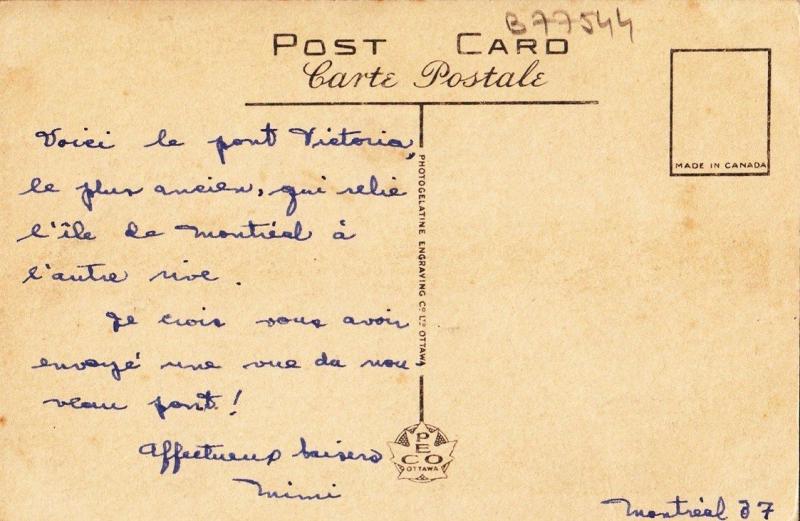 B77544
POST CARD
Carte Postale
MADE IN CANADA
Voici le pont Victoria,
le plus ancien, qui relie
l'île de Montréal à
l'autre rive.
Je crois vous avoir
envoyé une vue du nou-
veau pont!
Affectueux baisers
Mimi
PHOTOGELATINE ENGRAVING CO LTD OTTAWA
PECO
OTTAWA
Montréal 37